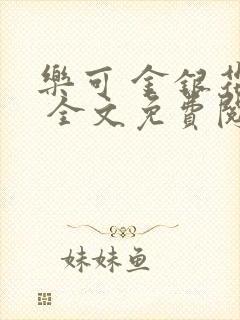 樂可 金銀花
全文免費閱
妹妹鱼